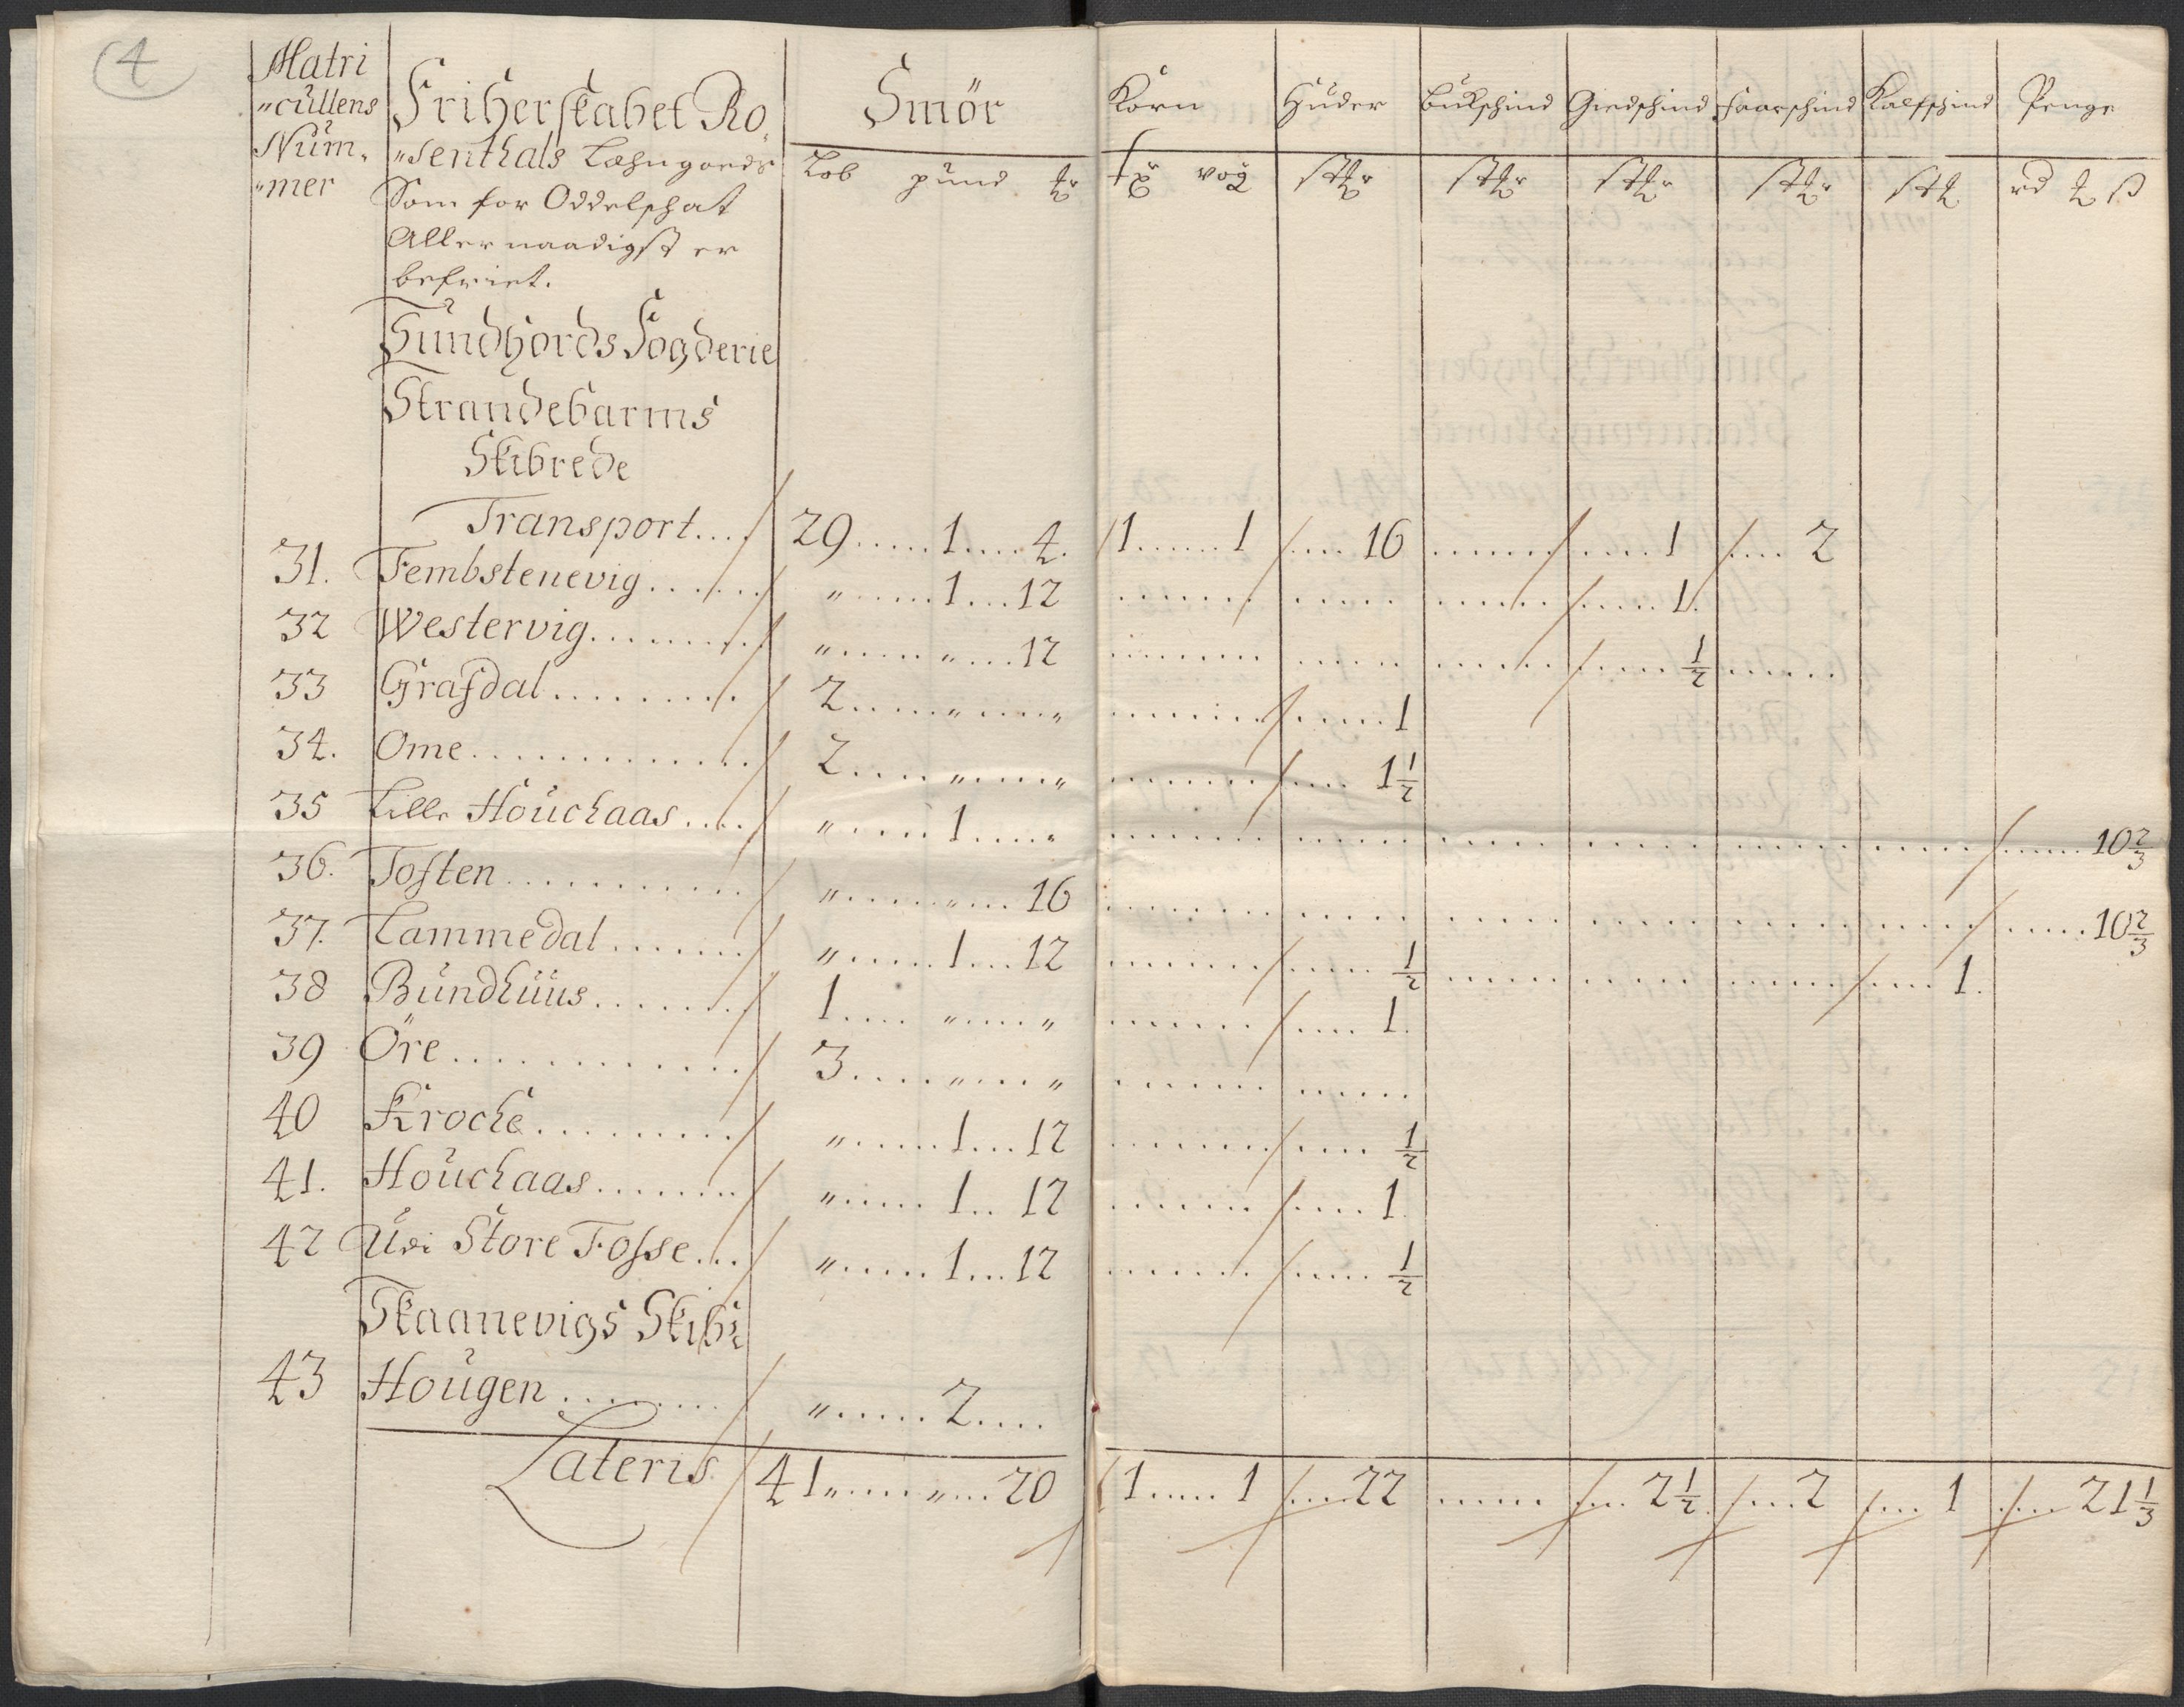 4
Matri
"cullens
Num,
"mer
Friherskabet Ro,
"senthals Læhngoeds
Som for Oddelschat
Allernaadigst er
befriet.
Smör
Lob pund
Korn Huder Bukschind Giedschind Faarschind Kalfschind Penge
vog
rd ß
Sundhords Fogderie
Strandebarms
Skibrede
Transport.... 29......1....4. 1......1 ....16 ...... ....1 ....2
31. Fembstenevig...... "......1...12 ...... ...... ...... ....1.
32 Westervig........ "......"...12 ...... ...... ...... ....1/2 ......
33 Grafdal......... 2....."....." ...... .....1
34. Ome............. 2....."....." ...... .... 1 1/2
35 Lille Houchaas.... ".....1....." ...... ...... ...... ...... ...... ...... ......10 2/3
36. Tosten........... "......"...16 ...... ...... ...... ...... ...... ...... .....10 2/3
37. Lammedal....... "......1...12 ...... ..... 1/2 ...... ...... ...... .... 1.
38 Bundhuus....... 1.... "....." ...... .... 1.
39 Öre............. 3....."....." ...... ......
40 Kroche.......... "......1...12 ...... .... 1/2
41. Houchaas........ "......1..12 ...... .... 1.
42 Udi Store Fosse... "......1...12 ...... ..... 1/2
Skaanevigs Skibr
43 Hougen......... "......2....
Lateris 41......"...20 1.....1 ....22 ...... ... 2 1/2. ...2 ... 1 .... 21 1/3